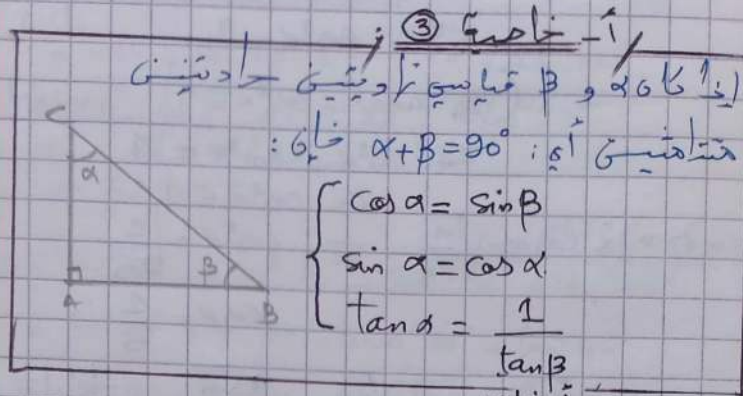 أ- خاصية ③ :
إذا كان α و β قياسي زاويتين حادتين
متتامتين أي: α+β=90° فإن:
C
α
cos α = sin β
sin α = cos α
β
A
B
tan α = 1/tan β